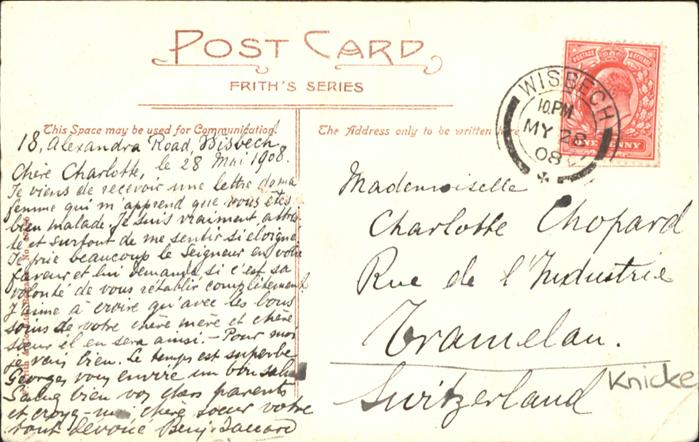 POST CARD
FRITH'S SERIES
This Space may be used for Communication.
The Address only to be written here
WISBECH
10.PM
MY 28
08
POSTAGE
ONE PENNY
18, Alexandra Road, Wisbech
Chère Charlotte, le 28 Mai 1908.
Je viens de recevoir une lettre de ma
femme qui m'apprend que vous êtes
bien malade. Je suis vraiment attris-
té et surtout de me sentir si éloigné.
Je prie beaucoup le Seigneur en votre
faveur et lui demande si c'est sa
volonté de vous rétablir complètement
J'aime à croire qu'avec les bons
soins de votre chère mère et chère
sœur il en sera ainsi. - Pour moi
je vais bien. Le temps est superbe.
Georges vous envoie un bon salut
Saluez bien vos chers parents
et croyez-moi chère soeur votre
tout dévoué Benj.
Mademoiselle
Charlotte Chopard
Rue de l'Industrie
Tramelan.
Switzerland
Knicke